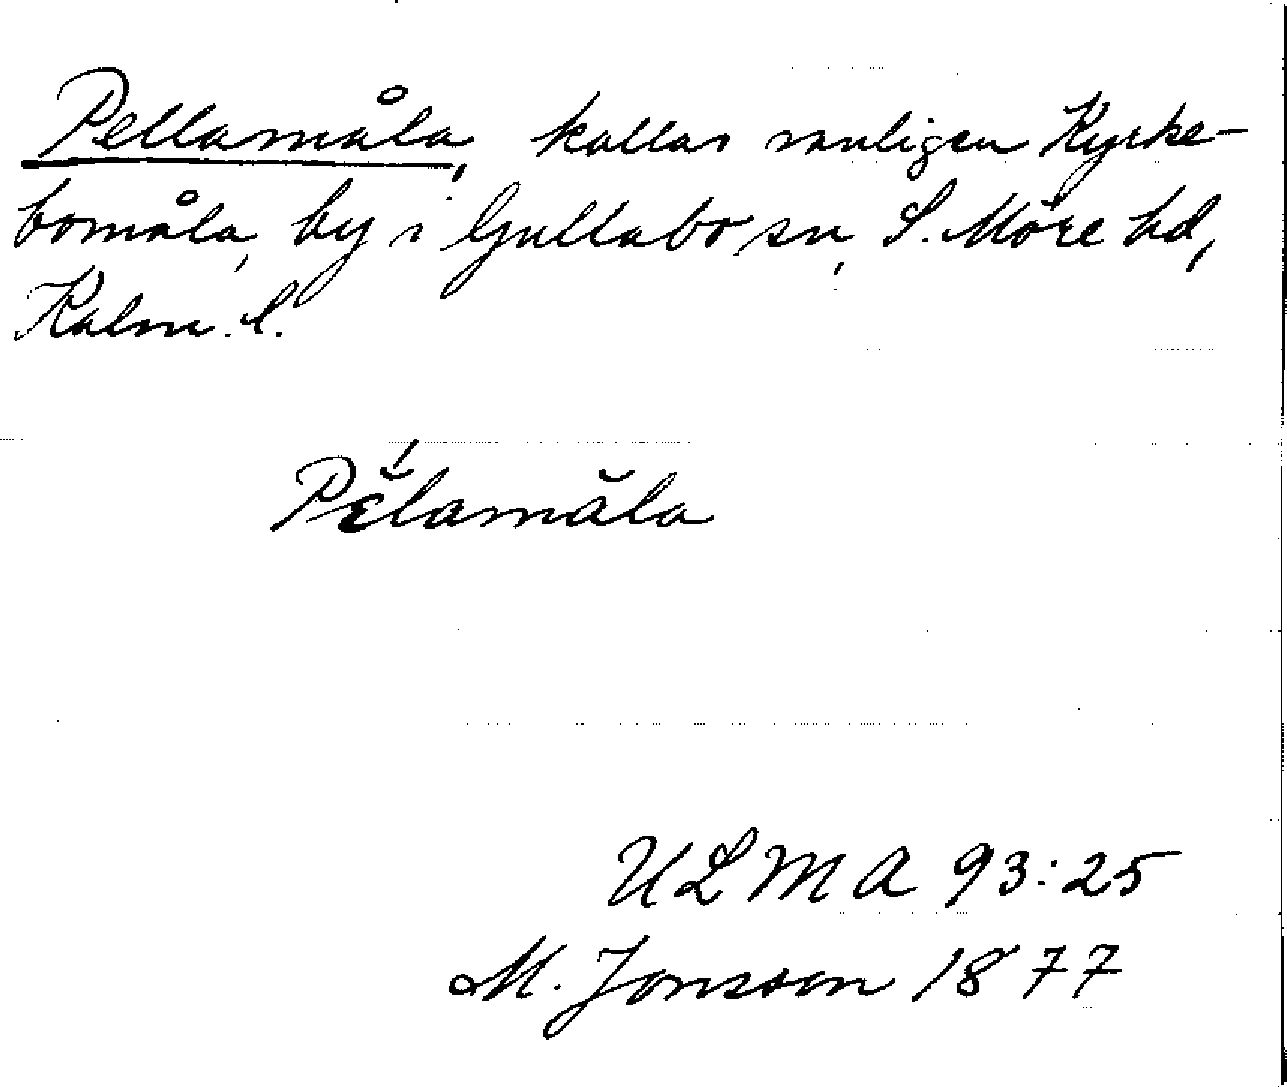 Pellamåla, kallas vanligen Kyrke-
bomåla, by i Gullabo sn, S. Möre hd,
Kalm. l.
Pɛ̆́lamăla
ULMA 93:25
M. Jonsson 1877